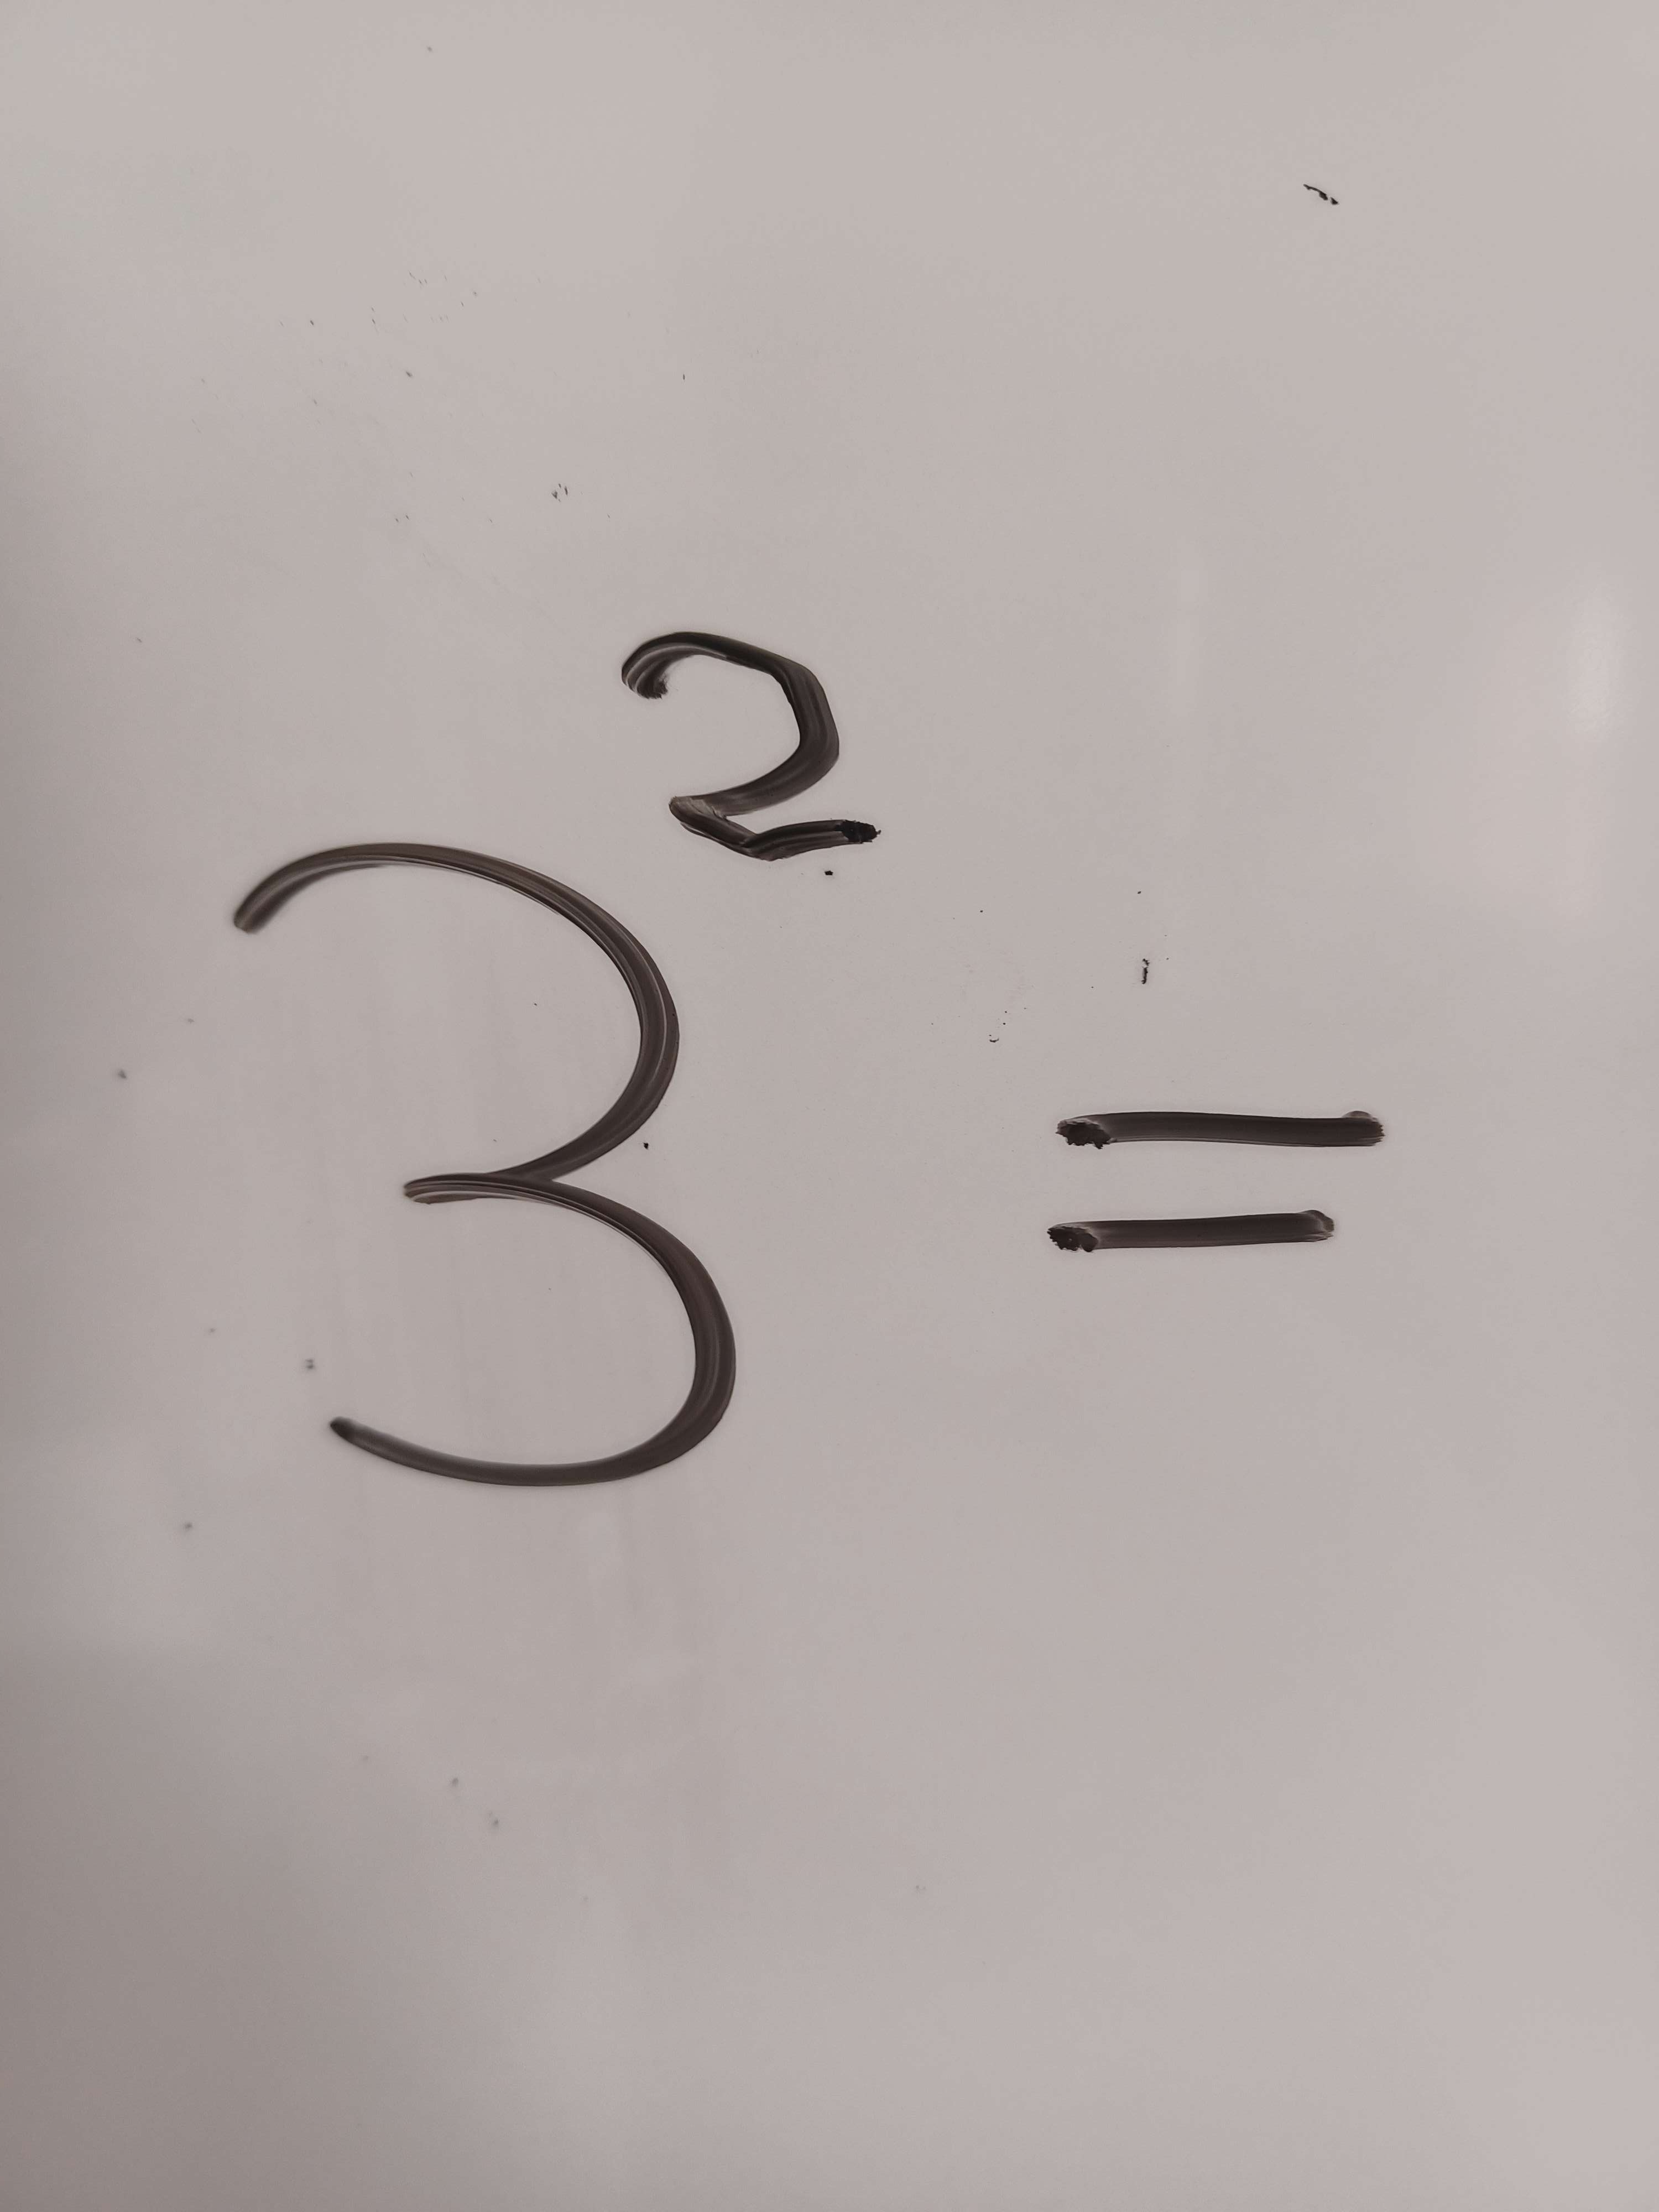 3² =